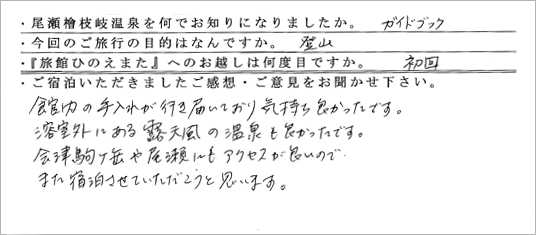 ・尾瀬檜枝岐温泉を何でお知りになりましたか。 ガイドブック
・今回のご旅行の目的はなんですか。 登山
・『旅館ひのえまた』へのお越しは何度目ですか。 初回
・ご宿泊いただきましたご感想・ご意見をお聞かせ下さい。
館内の手入れが行き届いており気持ち良かったです。
浴室外にある露天風の温泉も良かったです。
会津駒ヶ岳や尾瀬にもアクセスが良いので
また宿泊させていただこうと思います。